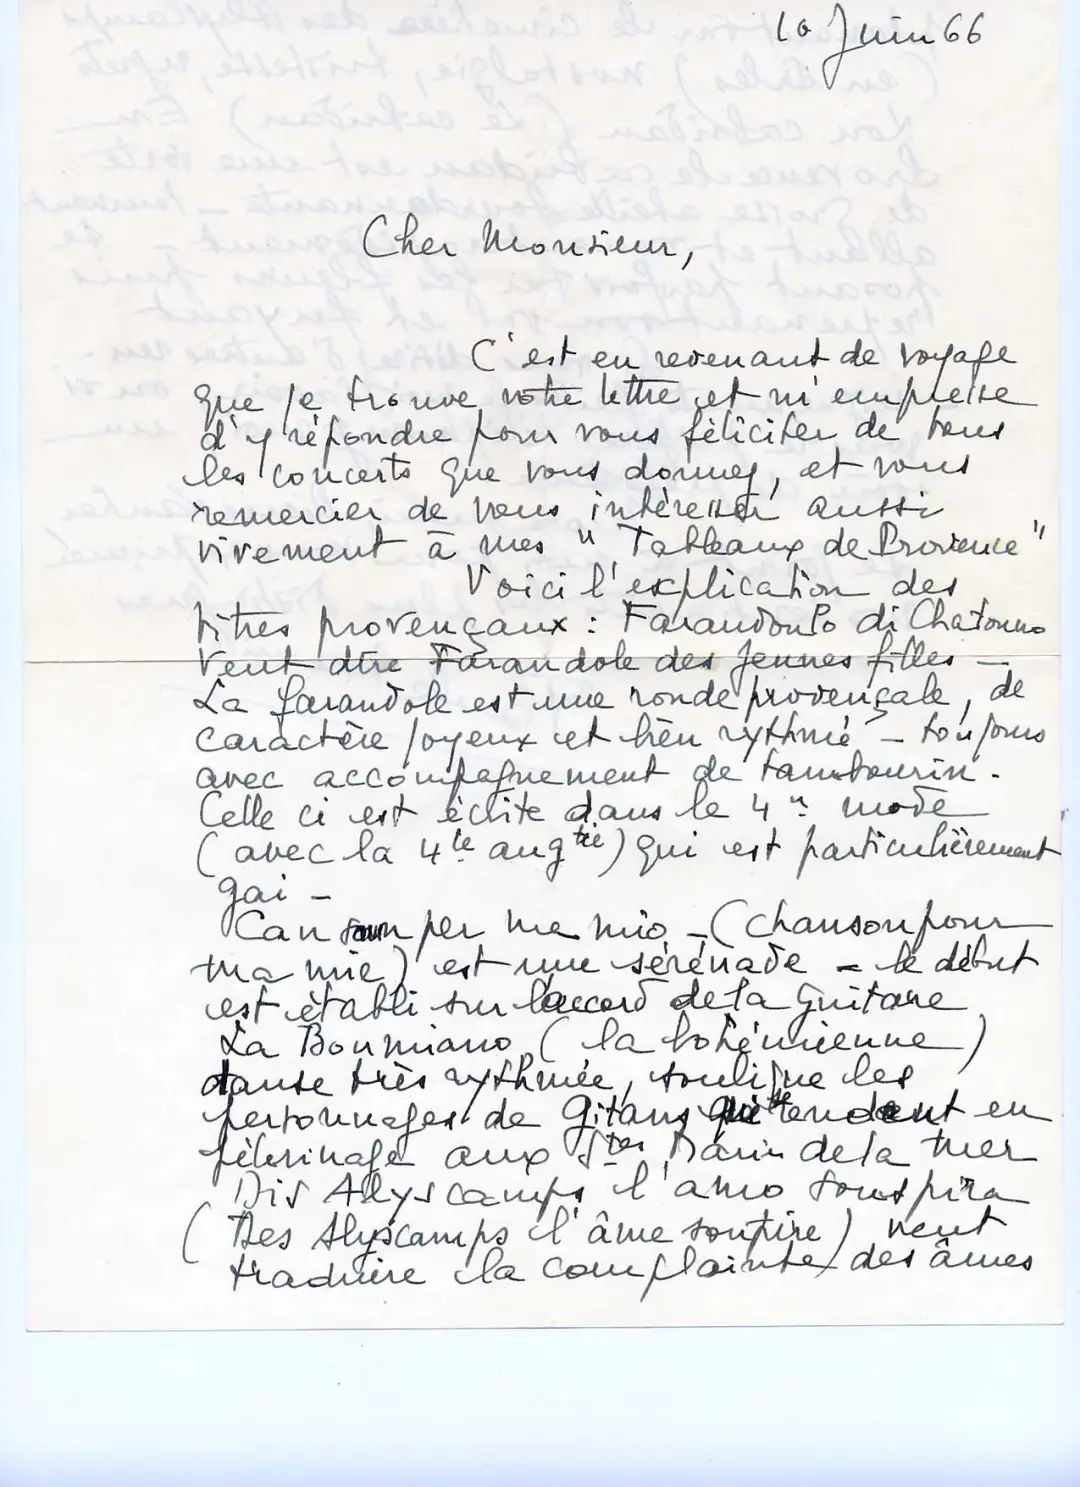 10 Juin 66
Cher Monsieur,
C'est en revenant de voyage
que je trouve votre lettre et m'empresse
d'y répondre pour vous féliciter de tous
les concerts que vous donnez, et vous
remercier de vous intéresser aussi
vivement à mes "Tableaux de Provence"
Voici l'explication des
titres provençaux : Farandoulo di Chatouno
veut dire Farandole des jeunes filles —
La farandole est une ronde provençale, de
caractère joyeux et bien rythmé — toujours
avec accompagnement de tambourin.
Celle ci est écrite dans le 4e mode
(avec la 4te augtée) qui est particulièrement
gai —
Cansoun per ma mio — (chanson pour
ma mie) est une sérénade — le début
est établi sur l'accord de la guitare
La Boumiano (la bohémienne)
danse très rythmée, souligne les
personnages de Gitans se rendant en
pèlerinage aux Stes Maries de la mer
Dis Alyscamps l'amo souspira
(Des Alyscamps l'âme soupire) veut
traduire la complainte des âmes